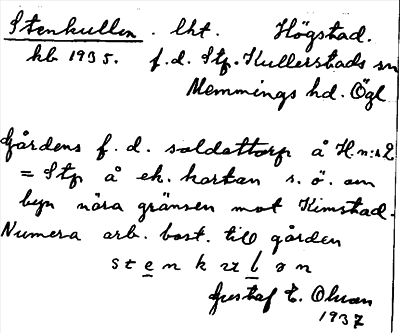 Stenkullen. lht. Högstad.
kb 1935. f.d. Stp. Kullerstads sn
Memmings hd. Ögl
Gårdens f. d. soldattorp å H. n:r 2
= Stp å ek. kartan s. ö. om
byn nära gränsen mot Kimstad.
Numera arb. bost. till gården
s t e n k u l ø n
Gustaf E. Olsson
1937